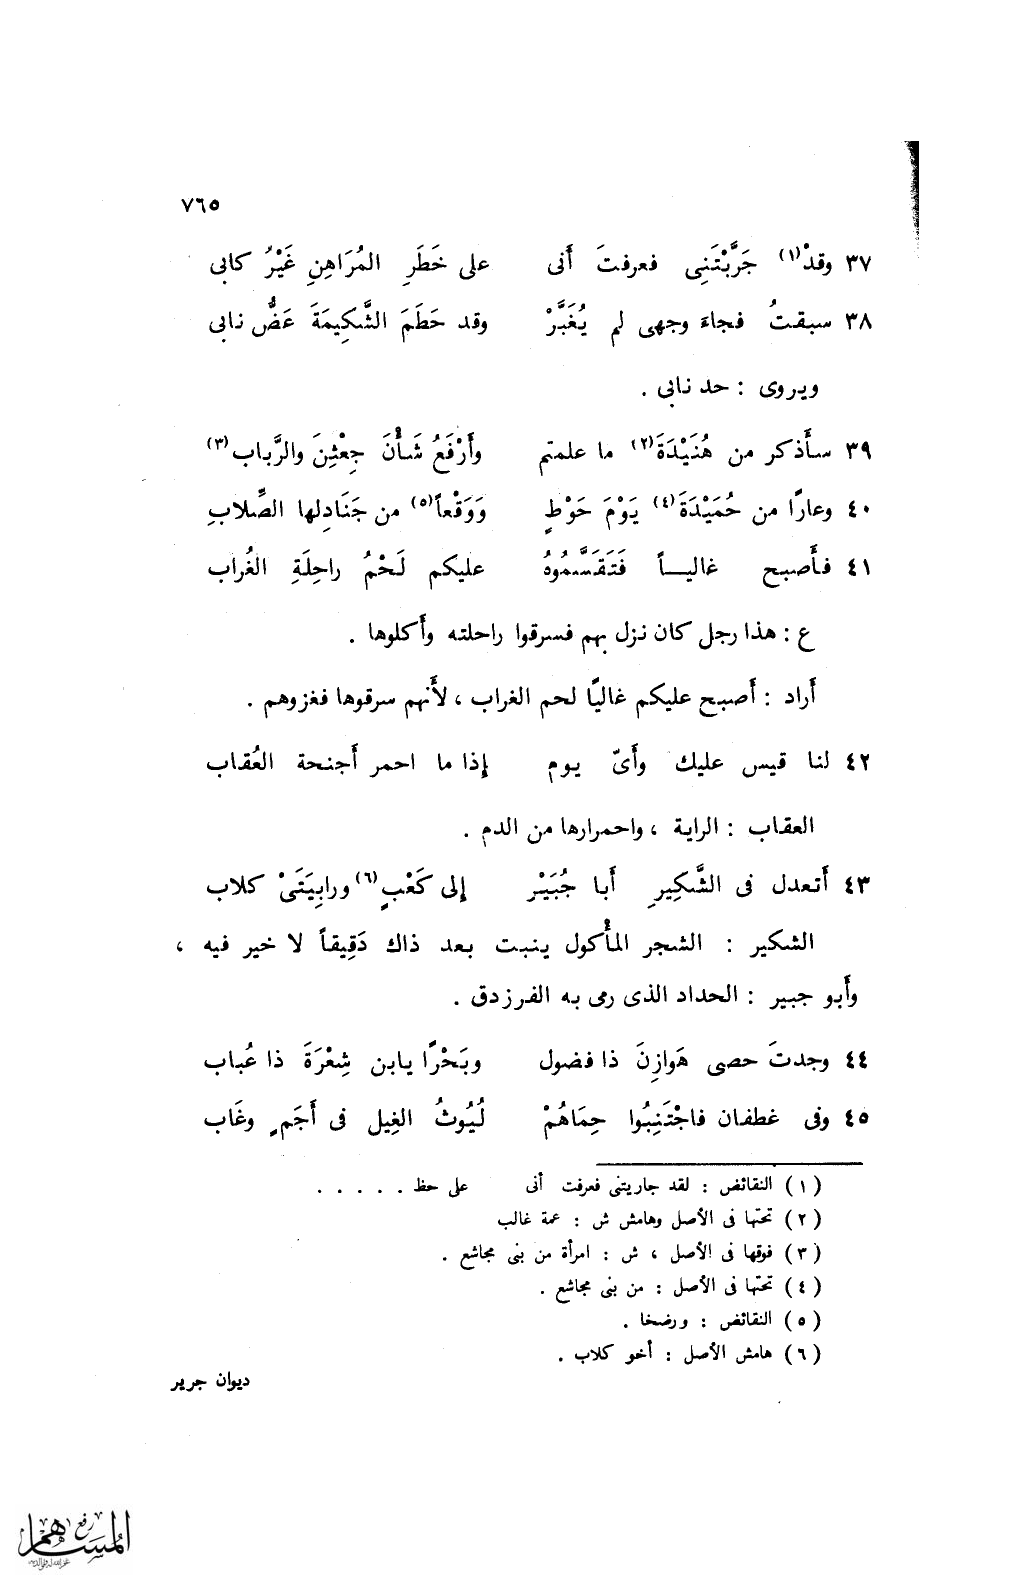 ٧٦٥
٣٧ وقدْ(١) جَرَّبْتَنِى فعرفتَ أَنى على خَطَرِ المُرَاهِنِ غَيْرُ كابى
٣٨ سبقتُ فجاءَ وجهى لم يُغَبَّرْ وقد حَطَمَ الشَّكِيمَةَ عَضُّ نابى
ويروى : حد نابى .
٣٩ سأَذكر من هُنَيْدَةَ(٢) ما علمتم وأَرْفَعُ شَأْنَ جِعْثِنَ والرَّباب(٣)
٤٠ وعارًا من حُمَيْدَةَ(٤) يَوْمَ حَوْطٍ وَوَقْعاً(٥) من جَنَادِلها الصِّلابِ
٤١ فأَصبح غاليـــاً فَتَقَسَّمُوهُ عليكم لَحْمُ راحِلَةِ الغُراب
ع : هذا رجل كان نزل بهم فسرقوا راحلته وأَكلوها .
أَراد : أَصبح عليكم غاليًا لحم الغراب ، لأَنهم سرقوها فغزوهم .
٤٢ لنا قيس عليك وأَىّ يوم إذا ما احمر أَجنحة العُقاب
العقاب : الراية ، واحمرارها من الدم .
٤٣ أَتعدل فى الشَّكِيرِ أَبا جُبَيْر إلى كَعْبٍ(٦) ورابِيَتَىْ كلاب
الشكير : الشجر المأْكول ينبت بعد ذاك دَقِيقاً لا خير فيه ،
وأَبو جبير : الحداد الذى رمى به الفرزدق .
٤٤ وجدتَ حصى هَوازِنَ ذا فضول وبَحْرًا يابن شِعْرَةَ ذا عُباب
٤٥ وفى غطفان فاجْتَنِبُوا حِمَاهُمْ لُيُوثُ الغِيل فى أَجَمٍ وغَاب
(١) النقائض : لقد جاريتنى فعرفت أنى على حظ . . . . .
(٢) تحتها فى الأصل وهامش ش : عمة غالب
(٣) فوقها فى الأصل ، ش : امرأة من بنى مجاشع .
(٤) تحتها فى الأصل : من بنى مجاشع .
(٥) النقائض : ورضخا .
(٦) هامش الأصل : أخو كلاب .
ديوان جرير
رفع
المساهم